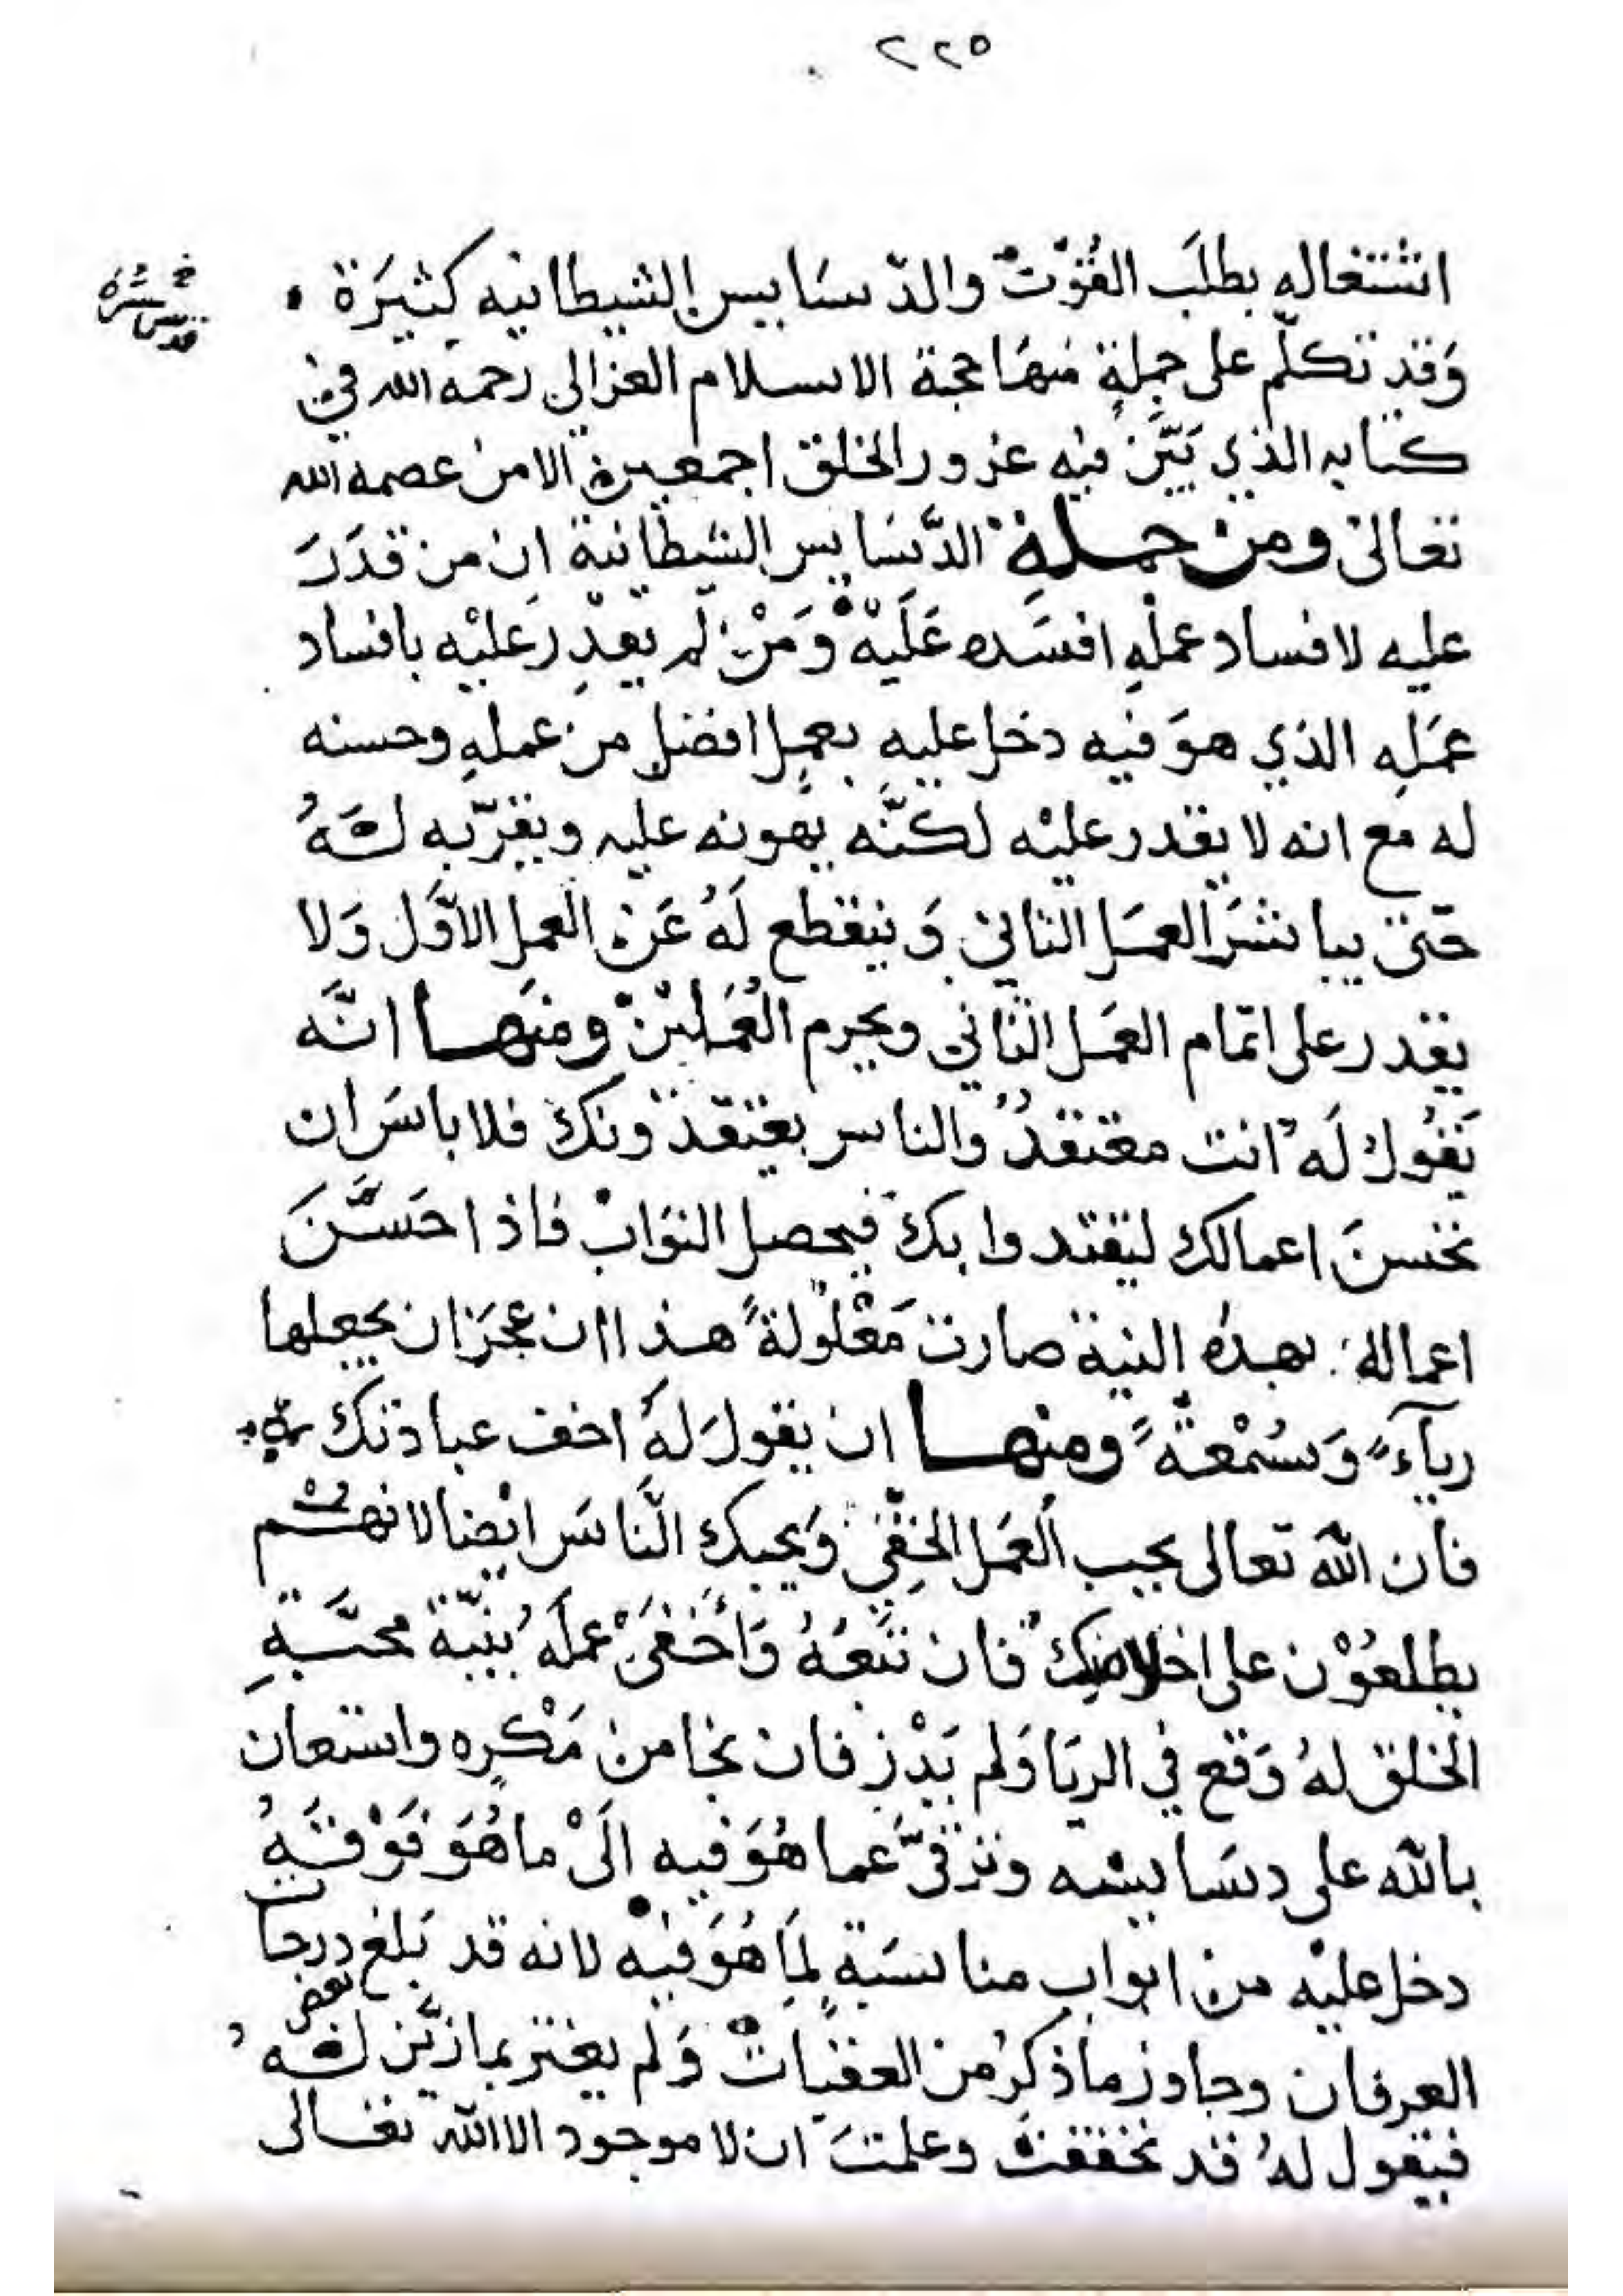 ٢٢٥
اشتغاله بطلَب القُوْتْ والدّسَايس الشيطانيه كثيرَة ۰
قدس سره
وَقد تكلّم على جملةٍ منهَا حجة الاسلام الغزالي رحمه الله في
كتابه الذي بَيَّن فيه غرور الخلق اجمعين الا من عصمه الله
تعالى ومن جملةِ الدَّسَايس الشيطانية ان من قدَرَ
عليه لافساد عملهِ افسَده عَلَيْهْ وَمَنْ لم يقدِر عليْه بافساد
عمَلِه الذي هوَ فيه دخل عليهِ بعمِلٍ افضل من عملهِ وحسنه
له مع انه لا يقدر عليْه لكنَّه يهونه عليه ويقرّبه لَهُ
حتّى يباشرَ العمَل الثاني وَينقطع لَهُ عَن العمل الاَوَّل وَلا
يقدر على اتمام العمَل الثاني ويحرم الْعَمَليْن ومنهَا انَّه
يَقُولُ لَه انت معتقدٌ والناس يعتقدونك فلا باسَ ان
تحسنَ اعمالك ليقتدوا بك فيحصل الثوَابْ فاذا حَسَّنَ
اعماله بهذه النية صارت مَعْلُولةً هذا ان عجَزَ ان يجعلها
رياءً وَسُمْعَةً ومنها ان يقولَ لَهُ اخف عبادتك
فان الله تعالى يحب الْعَمَل الخفِيّ وَيحبك النَّاسَ ايْضا لانهم
يطلعُوْن على اخلاصك فان تَبعَهُ وَاَخْفَى عملَهُ بنيّة محبَّةِ
الخلق لهُ وَقع في الريَا وَلم يَدْرِ فان نجا من مَكْرِه واستعان
بالله على دسَايسه وترقَّى عما هُوَ فيه الَى ما هُوَ فَوْقَهُ
دخل عليْه من ابواب مناسبَةٍ لِمَا هُوَ فيْه لانه قد بَلغ درجات
بعض
العرفان وجاوز ما ذكرَ من العقبات وَلم يغتر بما زيَّن لَهُ
فيقول لهُ قد تحققتَ وعلمتَ ان لا موجود الا الله تعالى